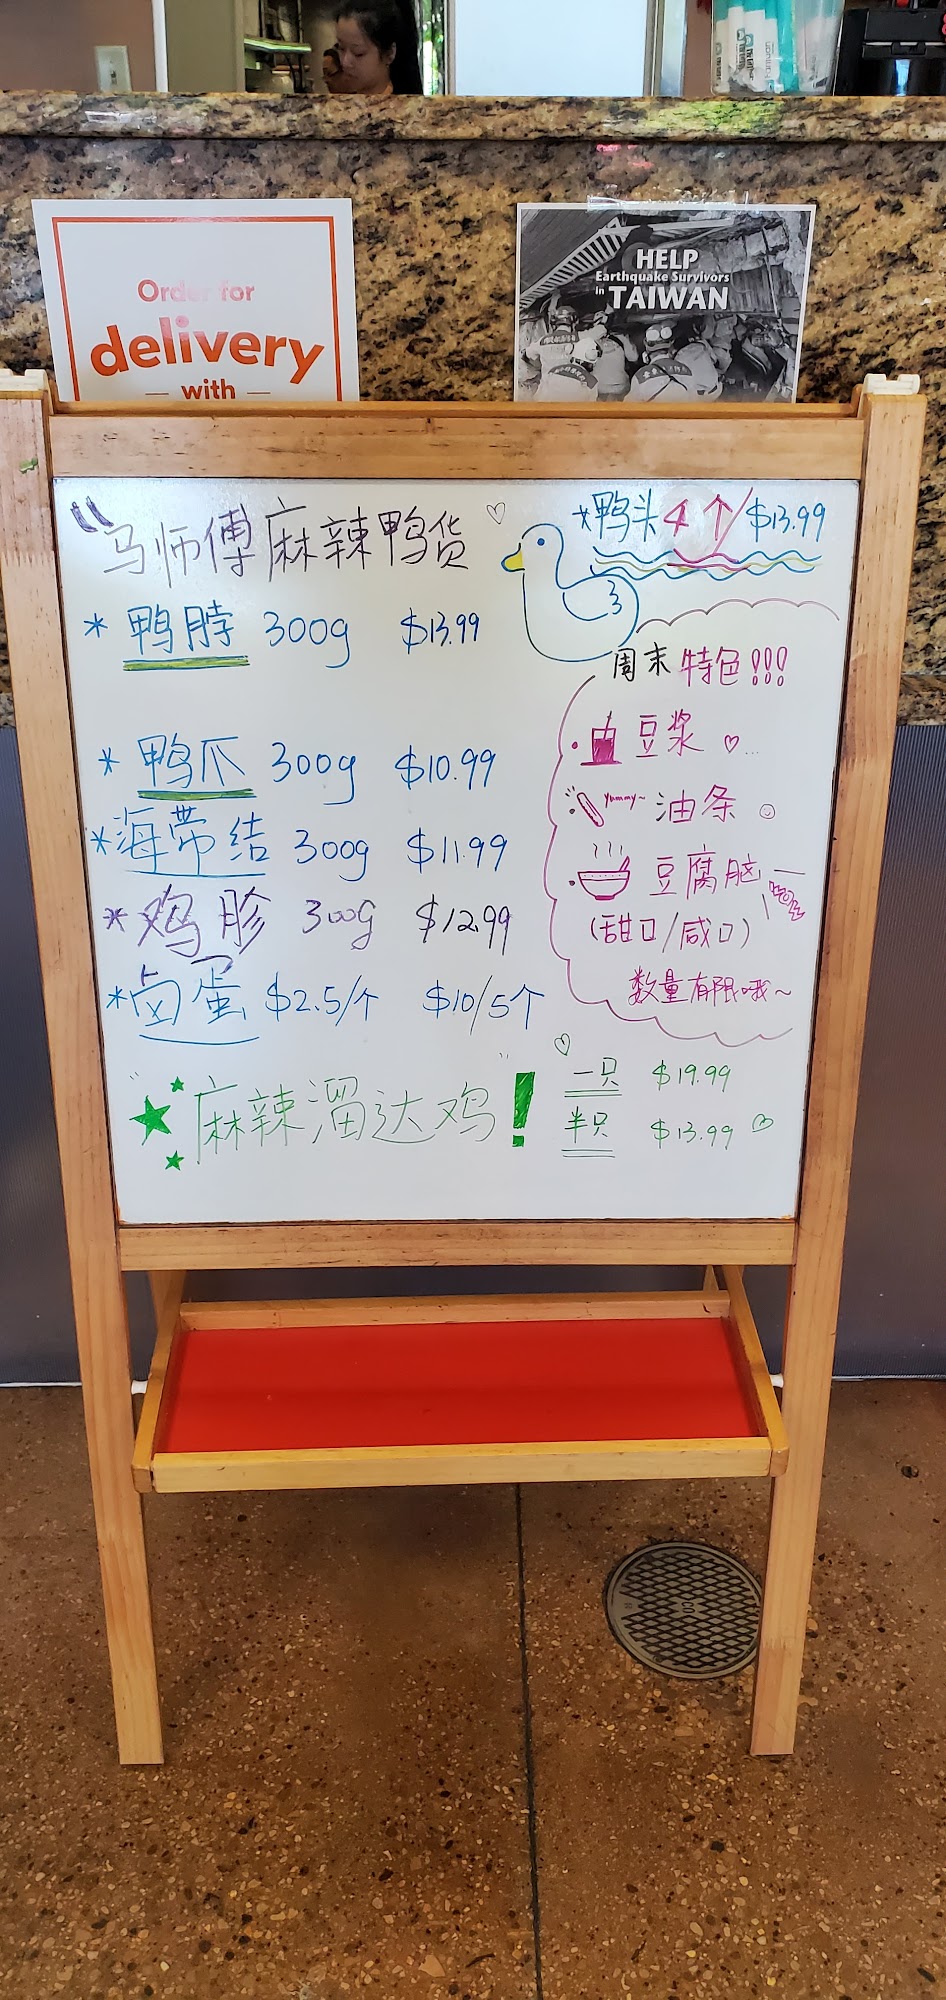 Order for
delivery
with
HELP
Earthquake Survivors
in TAIWAN
马师傅麻辣鸭货
*鸭头4个/$13.99
*鸭脖 300g $13.99
*鸭爪 300g $10.99
*海带结 300g $11.99
*鸡胗 300g $12.99
*卤蛋 $2.5/个 $10/5个
周末特色!!!
豆浆
yummy~ 油条
豆腐脑
(甜口/咸口)
数量有限哦~
麻辣溜达鸡!
一只 $19.99
半只 $13.99